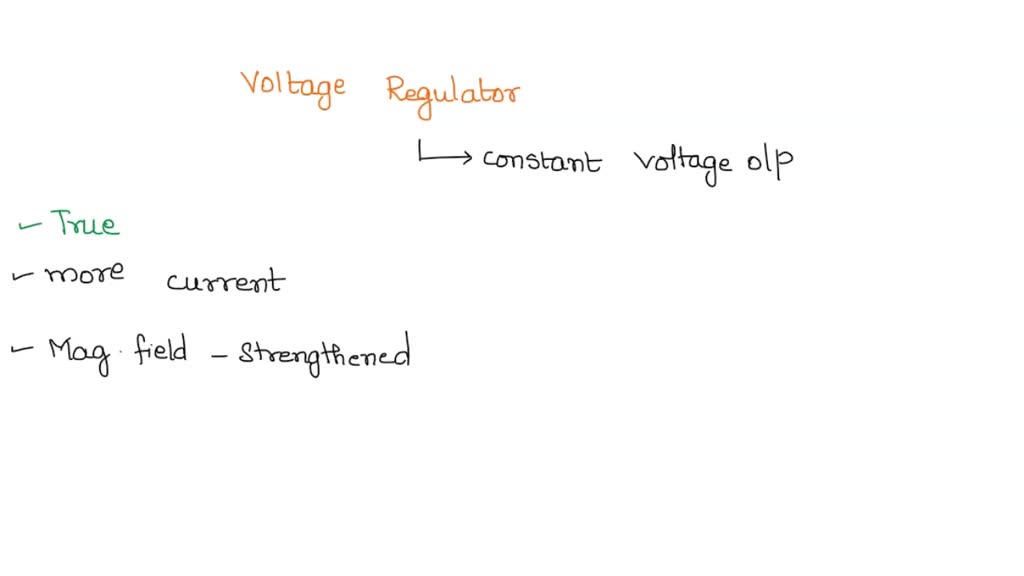 Voltage Regulator
↳ constant voltage o/p
✓ True
✓ more current
✓ Mag. field - strengthened